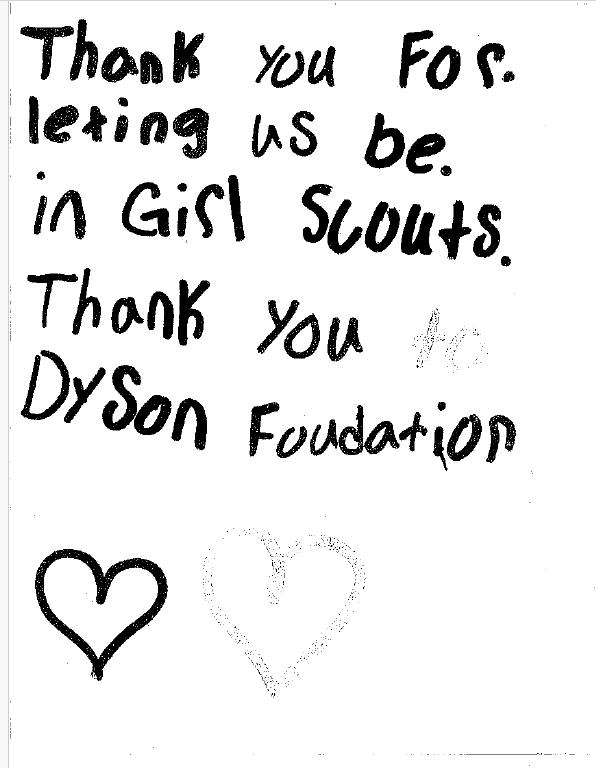 Thank you For.
leting us be.
in Girl Scouts.
Thank you to
Dyson Foudation